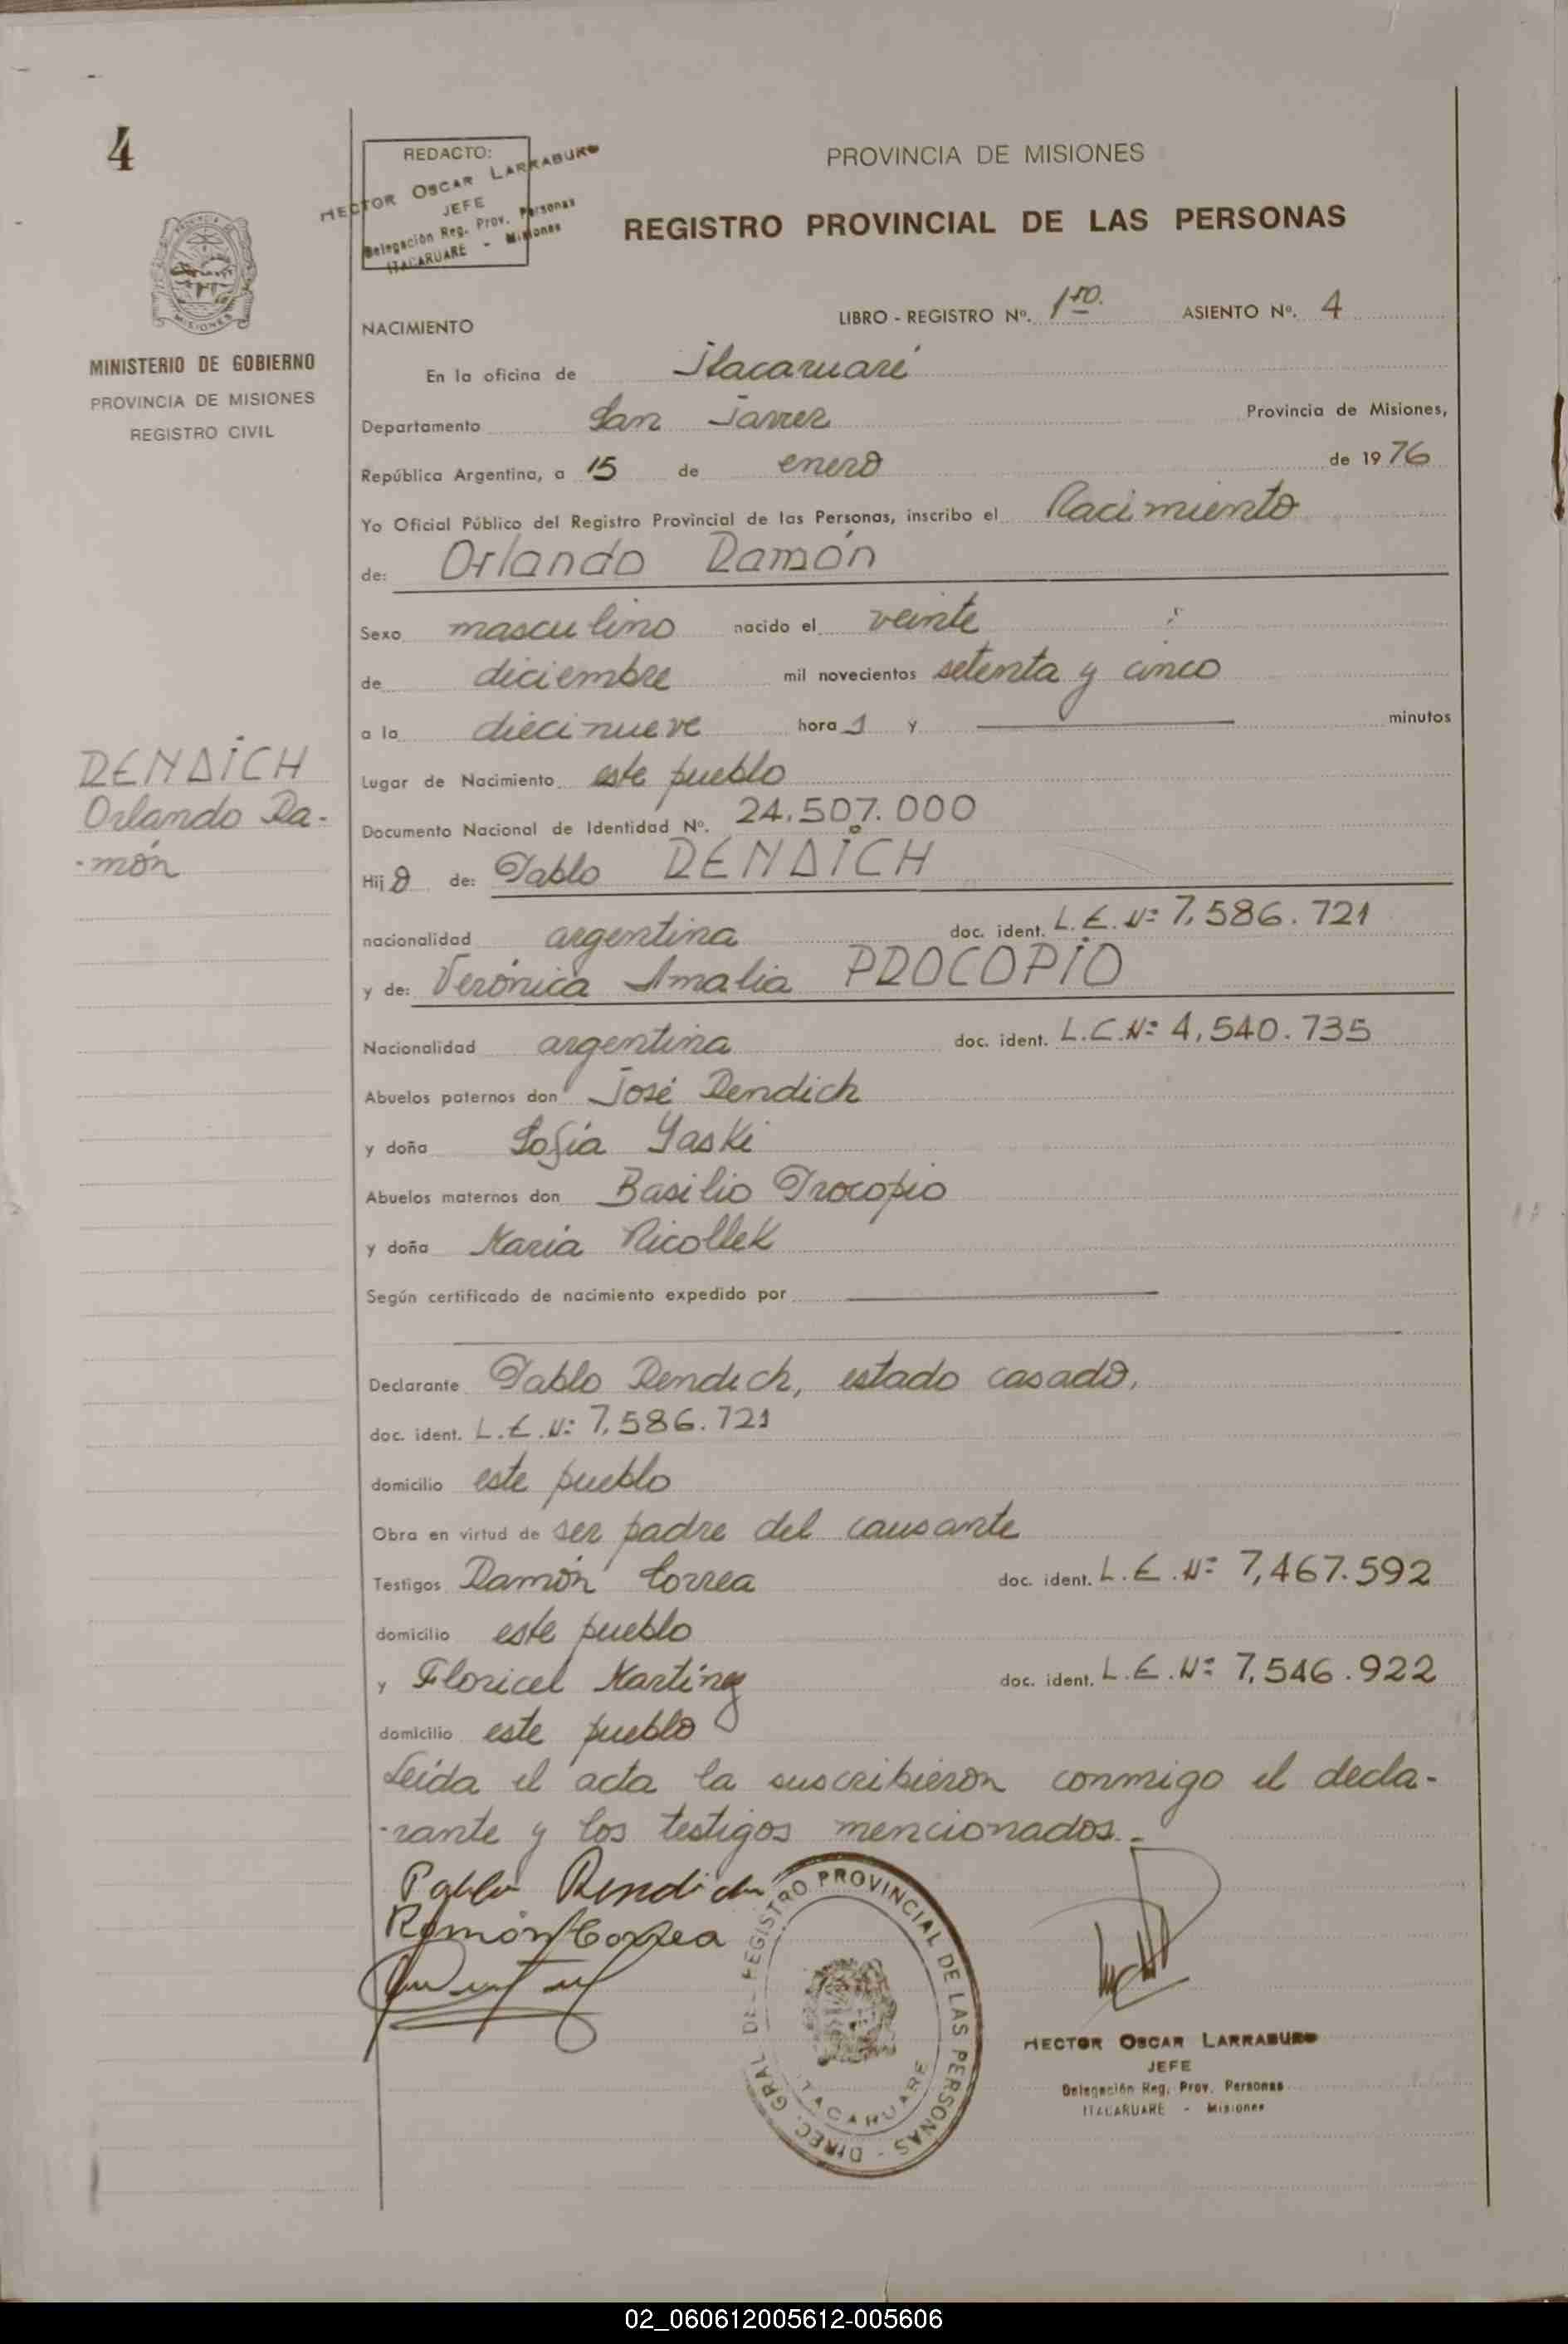 4
REDACTO:
HECTOR OSCAR LARRABURO
JEFE
Delegación Reg. Prov. Personas
ITACARUARE - Misiones
PROVINCIA DE MISIONES
REGISTRO PROVINCIAL DE LAS PERSONAS
PROVINCIA DE
MISIONES
MINISTERIO DE GOBIERNO
PROVINCIA DE MISIONES
REGISTRO CIVIL
NACIMIENTO
LIBRO - REGISTRO Nº. 1ro. ASIENTO Nº. 4
En la oficina de Itacaruaré
Departamento San Javier Provincia de Misiones,
República Argentina, a 15 de enero de 1976
Yo Oficial Público del Registro Provincial de las Personas, inscribo el Nacimiento
de: Orlando Ramón
Sexo masculino nacido el veinte
de diciembre mil novecientos setenta y cinco
a la diecinueve hora s y minutos
RENDICH
Orlando Ra-
-món
Lugar de Nacimiento este pueblo
Documento Nacional de Identidad Nº. 24.507.000
Hijo de: Pablo RENDICH
nacionalidad argentina doc. ident. L.E.Nº 7,586.721
y de: Verónica Amalia PROCOPIO
Nacionalidad argentina doc. ident. L.C.Nº 4,540.735
Abuelos paternos don José Rendich
y doña Sofía Yaski
Abuelos maternos don Basilio Procopio
y doña María Nicollek
Según certificado de nacimiento expedido por
Declarante Pablo Rendich, estado casado,
doc. ident. L.E.Nº 7,586.721
domicilio este pueblo
Obra en virtud de ser padre del causante
Testigos Ramón Correa doc. ident. L.E.Nº 7,467.592
domicilio este pueblo
y Floricel Martínez doc. ident. L.E.Nº 7,546.922
domicilio este pueblo
Leída el acta la suscribieron conmigo el decla-
-rante y los testigos mencionados.-
Pablo Rendich
Ramón Correa
DIREC. GRAL. DEL REGISTRO PROVINCIAL DE LAS PERSONAS -
ITACARUARE
HECTOR OSCAR LARRABURO
JEFE
Delegación Reg. Prov. Personas
ITACARUARE - Misiones
02_060612005612-005606